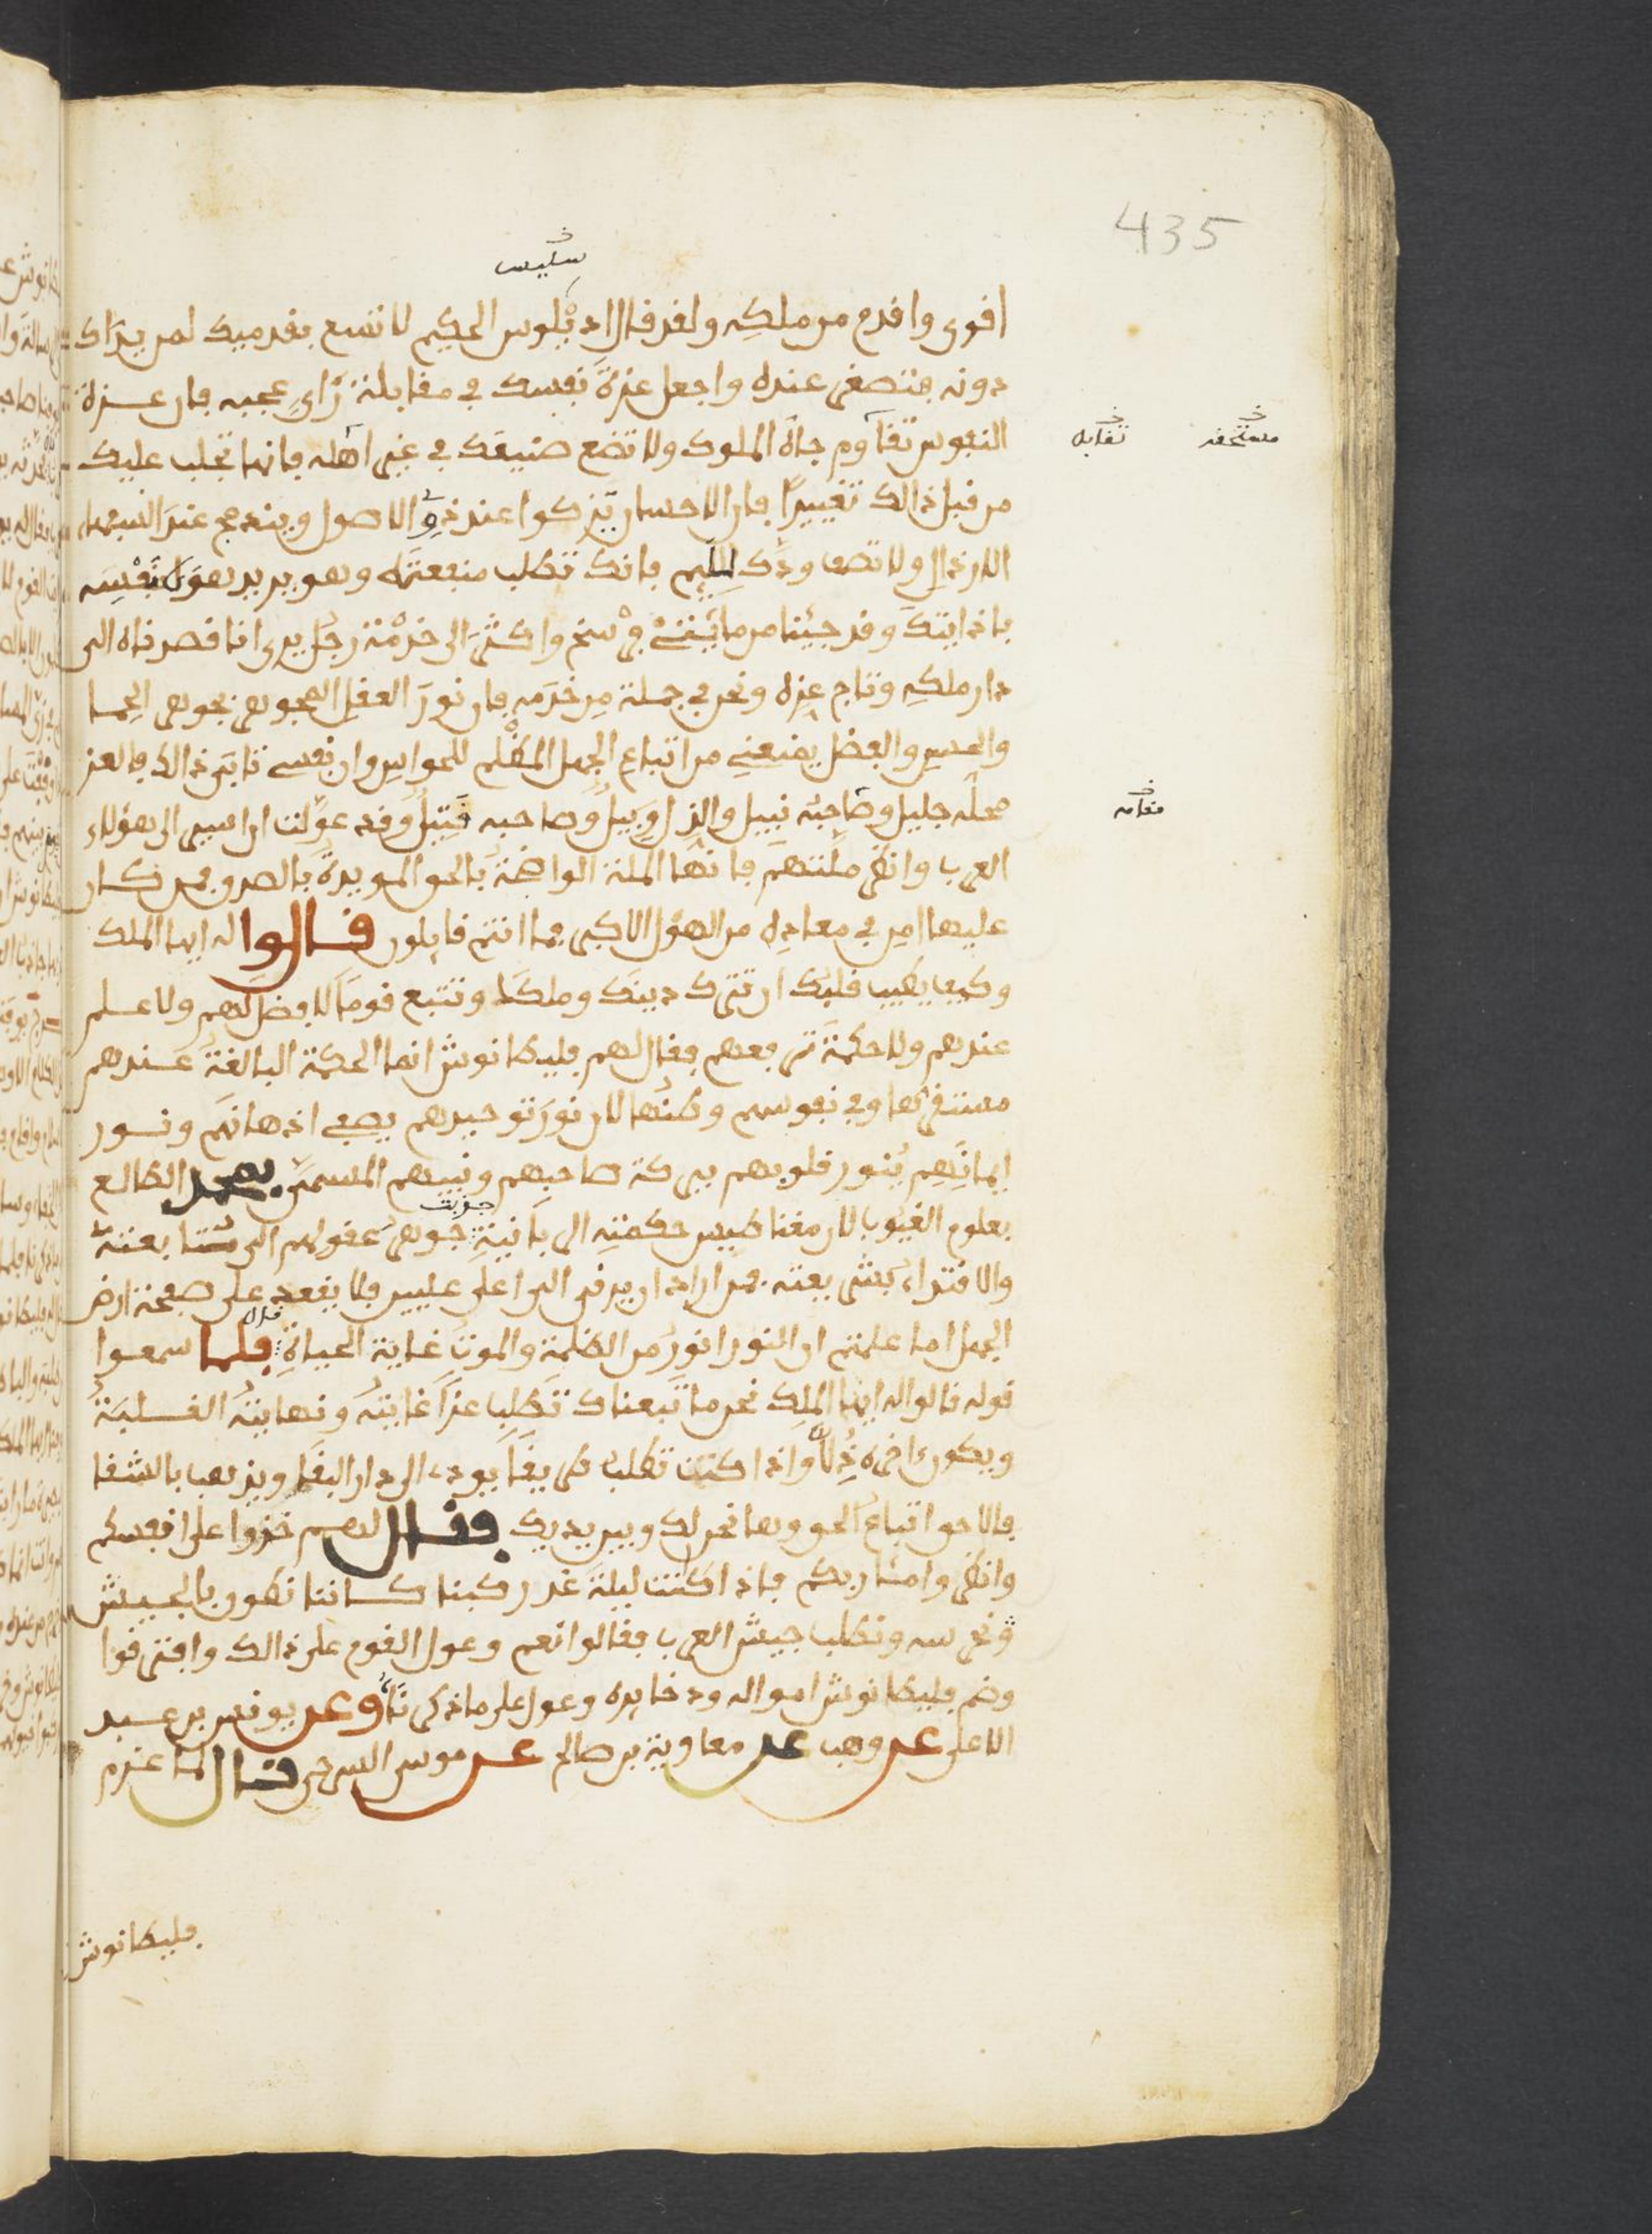 435
سليس
اقوى واقدم من ملكه ولقد قال اد يلوس الحكيم لا تسع بقدميك لمن يراك
دونه فتصغر عنده واجعل عزة نفسك في مقابلة رأي عجبه فان عزة
النفوس تقاوم جاه الملوك ولا تضع صنيعك في غير اهله فانها تجلب عليك
تقابل
مستحقه
من قبل ذالك تغييرا فان الاحسان يزكوا عند ذوي الاصول ويندمج عند السفهاء
الارذال ولا تصف ودك للئيم فانك تطلب منفعته وهو يريد هوى نفسه
فاذا انت وقد جينا من مائتي فرسخ واكثر الى خدمة رجل يرى انا قصرناه الى
دار ملكه وتاج عزه ونحن في جملة من خدمه فان نور العقل الجوهر بجوهر الحما
والحس والفضل يمنعني من اتباع الجهل المظلم للحواس وان نفسي تابى ذالك فالعز
محله جليل وصاحبه نبيل والذل وبيل وصاحبه قتيل وقد عولت ان اسير الى هؤلاء
مقامه
العرب وانظر ملتهم فانها الملة الواضحة بالحق المويدة بالصدق فمن كان
عليها امن في معاده من الهول الاكبر فما انتم قايلون قالوا له ايها الملك
وكيف يطيب قلبك ان تترك دينك وملكك وتتبع قوما لا فضل لهم ولا علم
عندهم ولا حكمة ترفعهم فقال لهم فليطانوش انما الحكمة البالغة عندهم
مستقرها وفي نفوسهم وطنها لان نور توحيدهم يصفي اذهانهم ونور
ايمانهم ينور قلوبهم ببركة صاحبهم ونبيهم المسمى بمحمد الطالع
بعلوم الغيوب لان مغناطيس حكمته الى بانية جوهر عقولهم الى متابعته
جذبت
والاقتداء بشريعته فمن اراد ان يرقى الى اعلى عليين فلا يقعد على صفحة ارض
الجهل اما علمتم ان النور انور من الظلمة والموت غاية الحياة قال فلما سمعوا
قوله قالوا له ايها الملك نحن ما تبعناك نطلب عزا غايته ونهايته الغلبة
ويكون اخره ذلا واذا كنت تطلب طريقا يودى الى دار البقا ويذهب بالشقا
فالاحق اتباع الحق وها نحن لك وبين يديك فقال لهم خذوا على انفسكم
وانظروا مئاربكم فاذا كانت ليلة غد ركبنا كاننا نطوف بالجيش
ونحرسه ونطلب جيش العرب فقالوا نعم وعول القوم على ذالك وافترقوا
وضم فليطانوش امواله وذخايره وعول على ما ذكرنا وعن يونس بن عبد
الاعلى عن وهب عن معاوية بن صالح عن موسى السرحي قال لما عزم
فليطانوش